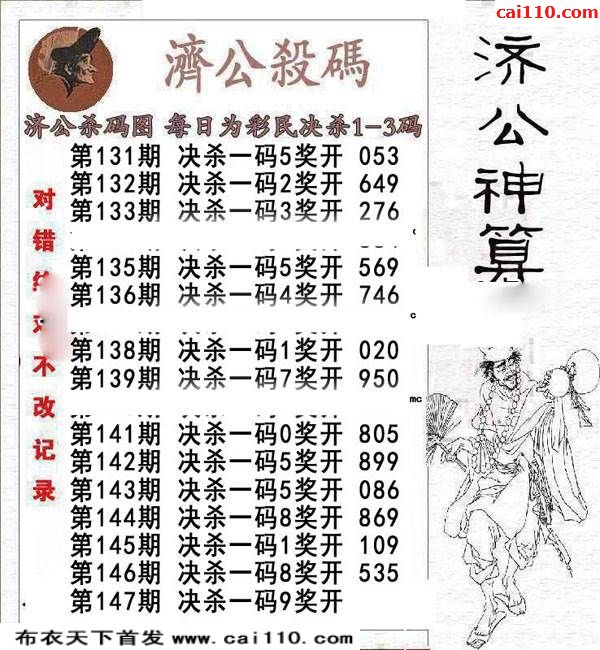 cai110.com
濟公殺碼
济公神算
济公杀码图 每日为彩民决杀1-3码
第131期 决杀一码5奖开 053
第132期 决杀一码2奖开 649
第133期 决杀一码3奖开 276
第135期 决杀一码5奖开 569
第136期 决杀一码4奖开 746
第138期 决杀一码1奖开 020
第139期 决杀一码7奖开 950
第141期 决杀一码0奖开 805
第142期 决杀一码5奖开 899
第143期 决杀一码5奖开 086
第144期 决杀一码8奖开 869
第145期 决杀一码1奖开 109
第146期 决杀一码8奖开 535
第147期 决杀一码9奖开
对错
不改记录
c
c
mc
布衣天下首发 www.cai110.com